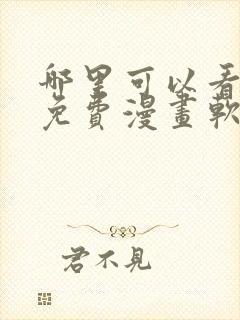 哪里可以看
免費漫畫軟
君不見